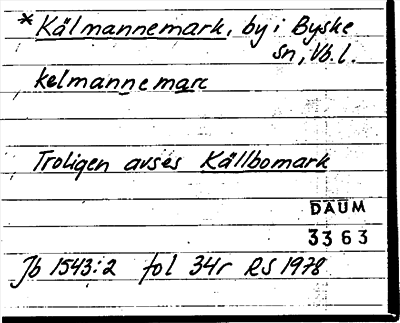 *Kälmannemark, by i Byske
sn, Vb. l.
kelmannemarc
Troligen avses Källbomark
DAUM
3363
Jb 1543:2 fol 34r RS 1978